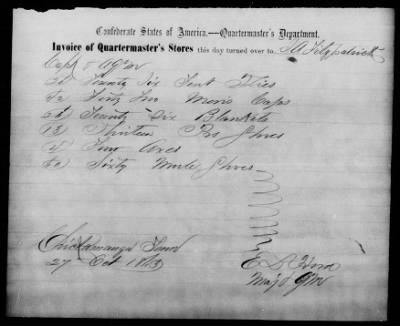 Confederate States of America.—Quartermaster's Department.
Invoice of Quartermaster's Stores this day turned over to J A Fitzpatrick
Capt & AQM
26 Twenty Six Tent Flies
42 Forty Two Mens Caps
26 Twenty Six Blankets
13 Thirteen Prs Shoes
4 Four Axes
60 Sixty Mule Shoes
Chickamauga Tenn
27 Oct 1863
E D Hord
Maj & QM